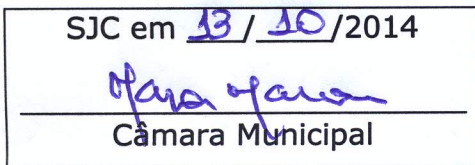 SJC em 13/10/2014
Câmara Municipal